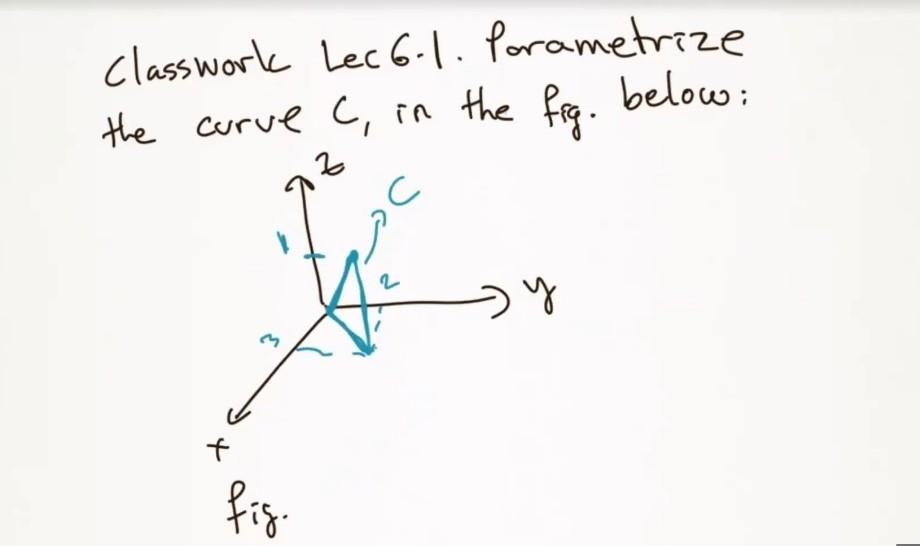 Classwork Lec 6.1. Parametrize
the curve C, in the fig. below:
z
C
1
2
y
3
x
fig.